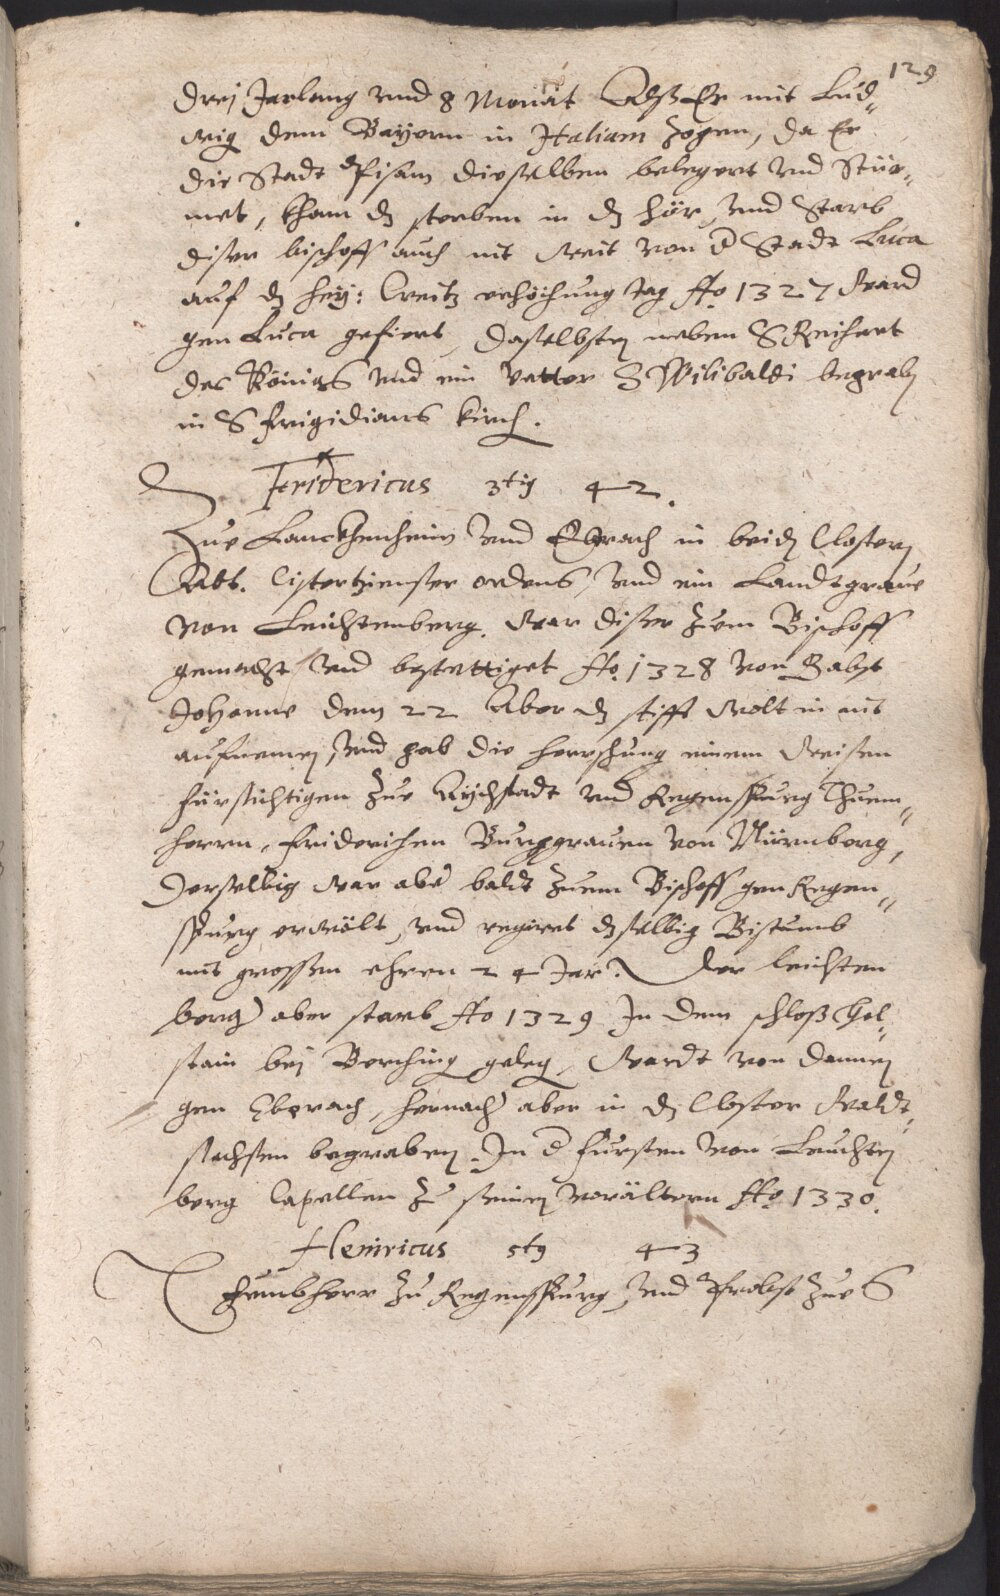 129
drej Jarlang vnd 8 Monat Alß Er mit Lud-
wig dem Bayern in Italiam zogen, da Er
die Stadt Pisam dieselben belegert vnd Stür-
met, kham dz sterben in dz hör, vnd Starb
diser bischoff auch nit weit von d Stadt Luca
auf dz hey: Creitz erhöchung tag Ao 1327 ward
gen Luca gefiert, daselbsten neben S Reichart
des Königs vnd ein vatter S Wilibaldi begraben
in S frigidians kirch.
Fridericus 3tig 42.
Zue Lanckhenheim vnd Ebrach in beiden Clostern
Abt. Cistertzienser ordens, vnd ein Landtgraue
von Leichtenberg. war diser zum Bischoff
gemacht vnd bestettiget Ao. 1328 von Babst
Johanne dem 22 Aber dz stifft wolt in nit
aufnemen, vnd gab die herschung einem weisen
fürsichtigen zue Aychstadt vnd Regenspurg Thuem-
herrn, friderichen Burggrauen von Nürmberg,
derselbig war aber baldt zuem Bischoff gen Regen-
spurg erwölt, vnd regiret dzselbig Bistumb
mit grossen ehren 24 Jar. Der leichten
berger aber starb Ao 1329 In dem schloß Hol-
stain bej Berching geleg, wardt von dannen
gen Ebrach, hernach aber in dz Closter Waldt-
sachsen begraben. In d fürsten von Leuchten
berg Capellen zu seinen vorältern Ao 1330.
Henricus 5tg 43
Thumbherr zu Regenspurg, vnd Probst zue S